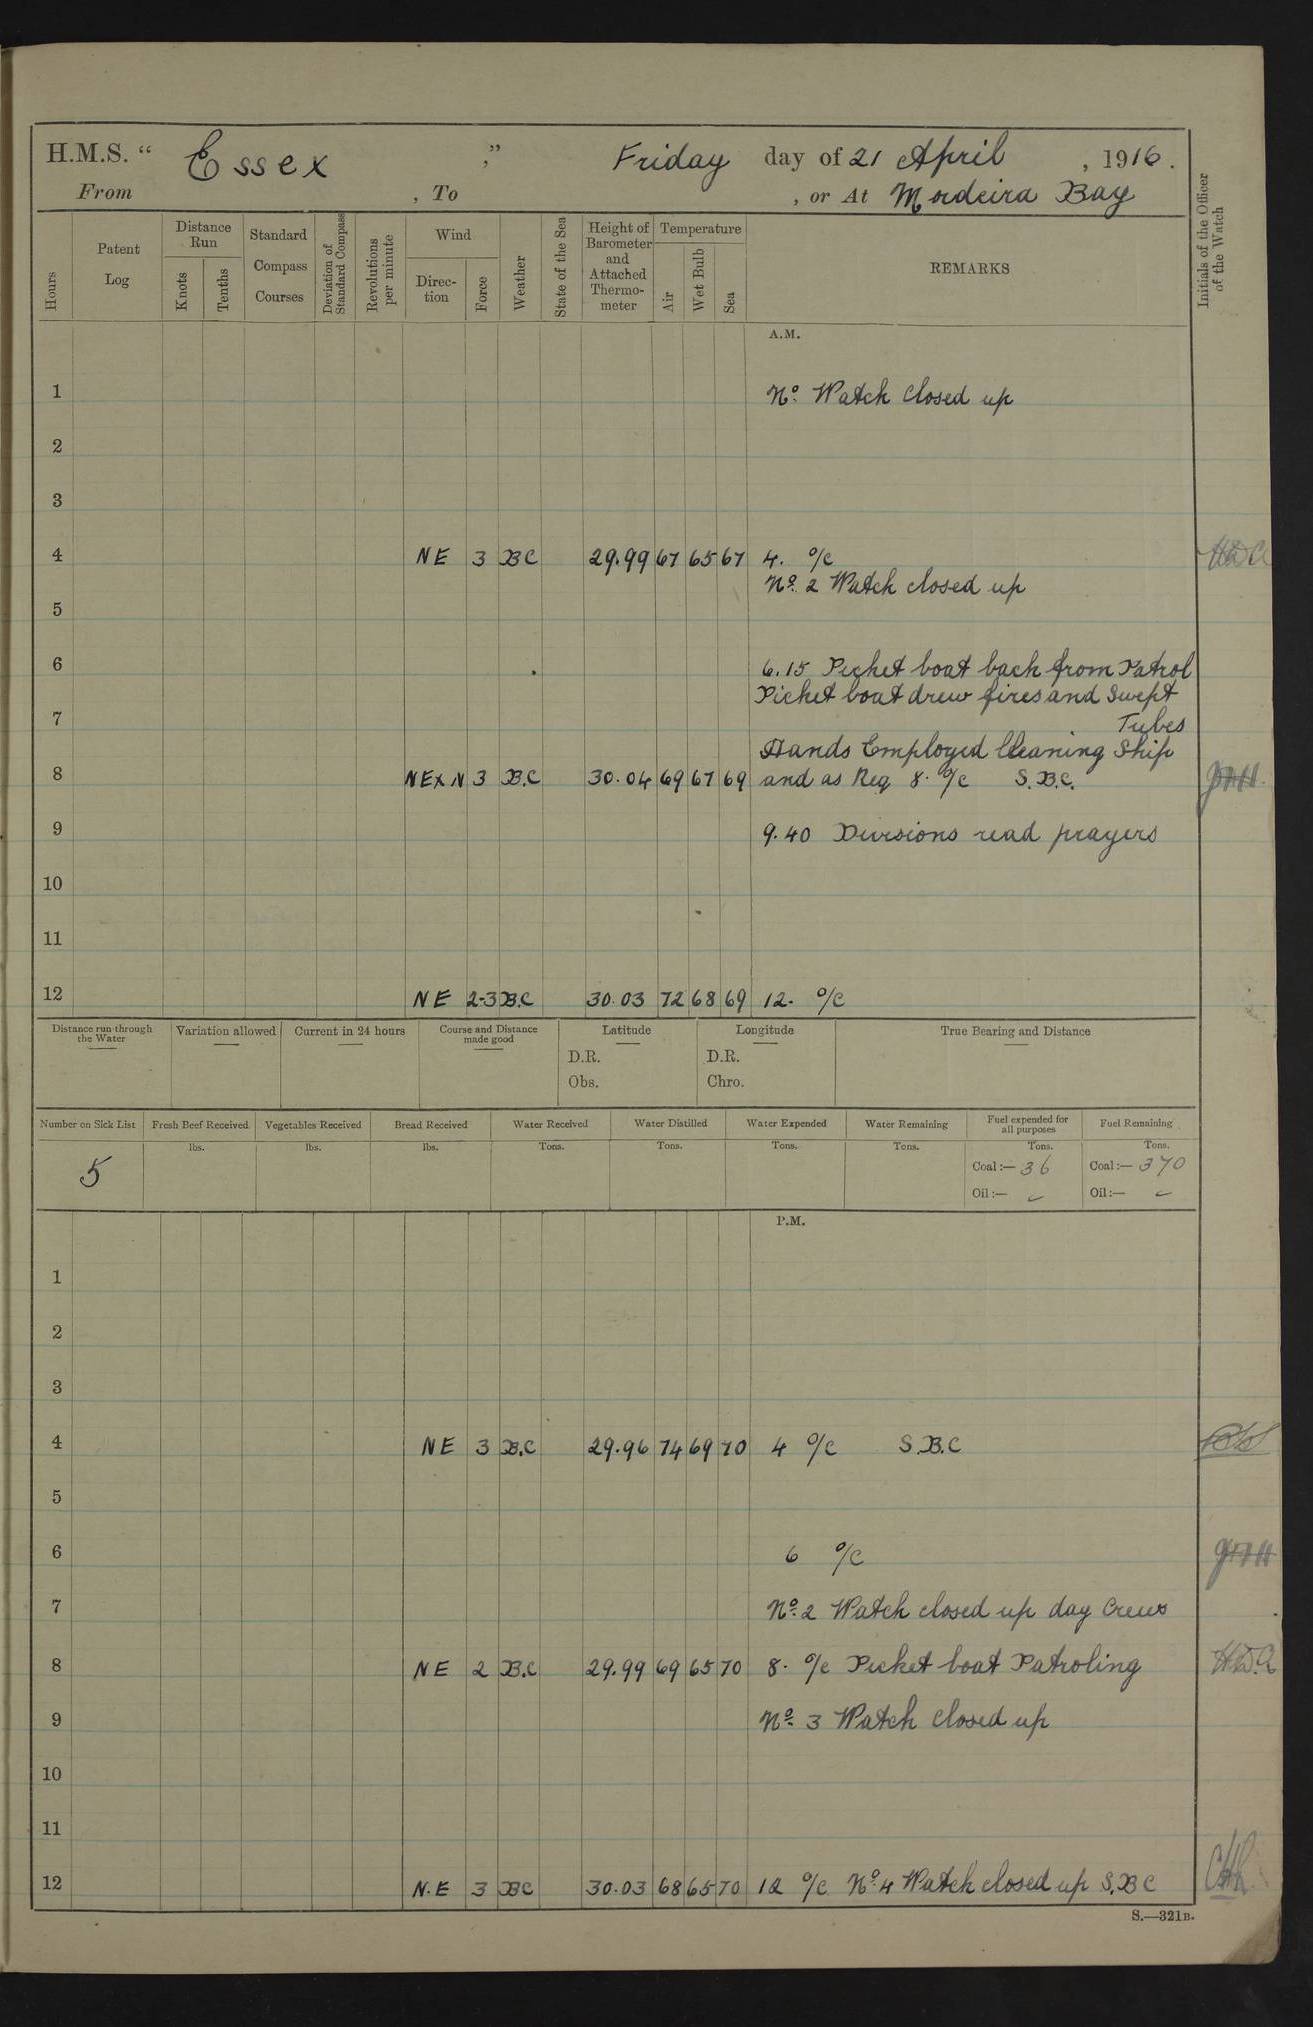 H.M.S. “ Essex ,” Friday day of 21 April , 1916.
From , To , or At Mordeira Bay
Hours
Patent Log
Distance Run
Knots
Tenths
Standard Compass Courses
Deviation of Standard Compass
Revolutions per minute
Wind
Direc-tion
Force
Weather
State of the Sea
Height of Barometer and Attached Thermo-meter
Temperature
Air
Wet Bulb
Sea
REMARKS
Initials of the Officer of the Watch
A.M.
1 No. Watch Closed up
2
3
4 NE 3 BC 29.99 67 65 67 4. o/c
No. 2 Watch closed up
5
6 6.15 Picket boat back from Patrol
Picket boat drew fires and Swept
7 Tubes
Hands Employed Cleaning Ship
8 NExN 3 B.C 30.04 69 67 69 and as Req 8. o/c S.B.C.
9 9.40 Divisions read prayers
10
11
12 NE 2-3 B.C 30.03 72 68 69 12. o/c
Distance run through the Water
Variation allowed
Current in 24 hours
Course and Distance made good
Latitude
D.R.
Obs.
Longitude
D.R.
Chro.
True Bearing and Distance
Number on Sick List Fresh Beef Received Vegetables Received Bread Received Water Received Water Distilled Water Expended Water Remaining Fuel expended for all purposes Fuel Remaining
lbs. lbs. lbs. Tons. Tons. Tons. Tons. Tons. Tons.
5 Coal:— 36 Coal:— 370
Oil:— Oil:—
P.M.
1
2
3
4 NE 3 B.C 29.96 74 69 70 4 o/c S.B.C
5
6 6 o/c
7 No. 2 Watch closed up day Crews
8 NE 2 B.C 29.99 69 65 70 8. o/c Picket boat Patroling
9 No. 3 Watch Closed up
10
11
12 N.E 3 BC 30.03 68 65 70 12 o/c No. 4 Watch closed up S.B C
S.—321B.